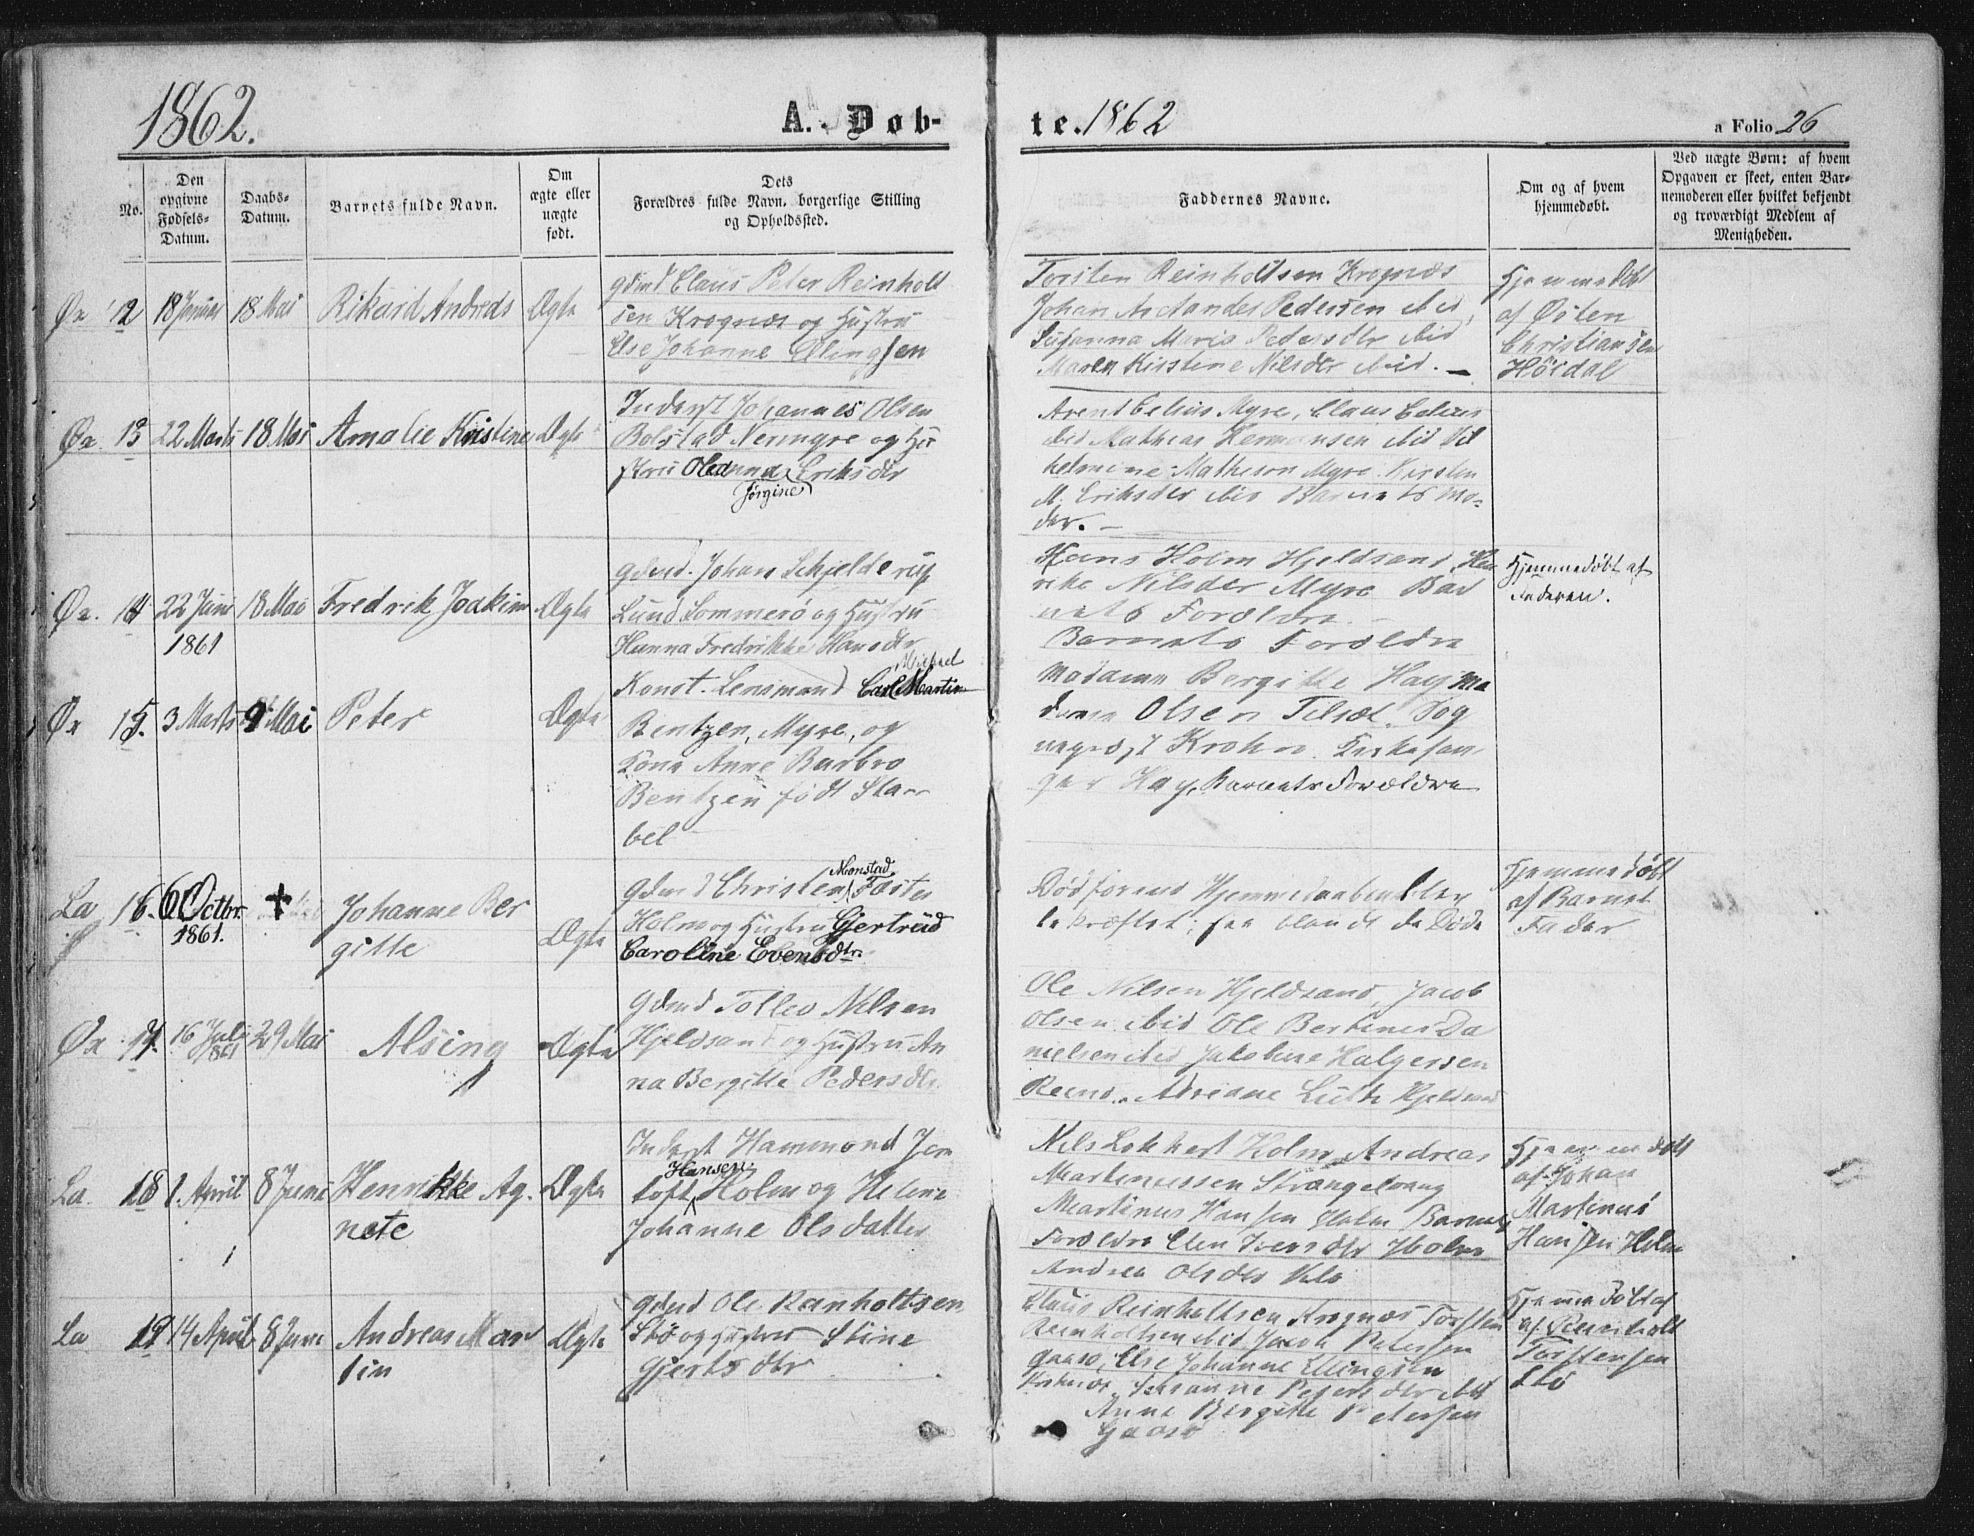 1862.
A. Døb-
te. 1862
a Folio 26
No.
Den opgivne Fødsels-Datum.
Daabs-Datum.
Barnets fulde Navn.
Om ægte eller uægte født.
Dets Forældres fulde Navn, borgerlige Stilling og Opholdssted.
Faddernes Navne.
Om og af hvem hjemmedøbt.
Ved uægte Børn: af hvem Opgaven er skeet, enten Barnemoderen eller hvilket bekjendt og troværdigt Medlem af Menigheden.
Øx 12 18 Januar 18 Mai Rikard Andreas Ægte
Gdmd Claus Peter Reinholt
sen Krognæs og Hustru
Else Johanne Ellingsen
Torsten Reinholtsen Krognæs
Johan Arctander Pedersen ibid,
Susanna Maria Pedersdtr ibid
Maren Kirstine Nilsdtr ibid. —
Hjemmedøbt
af Østen
Christiansen
Hördal
Øx. 13 22 Marts 18 Mai Amalie Kristine Ægte
Inderst Johannes Olsen
Bolstad Nermyre og Hu
stru Oleanna Eriksdtr
Jørgine
Arent Celius Myre, Claus Celius
ibid Mathias Hermansen ibid Vil
helmine Matheson Myre. Kirsten
M. Eriksdtr ibid Barnets Mo-
der. —
Øx. 14 22 Juni 18 Mai Fredrik Joakim Ægte
1861
Gdmd. Johan Schjelderup
Lund Sommerø og Hustru
Hanna Fredrikke Hansdtr
Hans Holm Hjeldsand, Hen
rike Nilsdtr Myre Bar
nets Forældre. —
Hjemmedøbt af
Faderen.
Øx 15. 3 Marts 9 Mai Peter Ægte
Michael
Konst. Lensmand Carl Martin
Bentzen, Myre, og
Kone Anne Barbro
Bentzen født Sta
bel
Barnets Forældre
Madame Bergitte Hay Ma
dame Olsen Tilset. Sog
neprest Krohn. Kirkesan
ger Hay, Barnets Forældre
La 16. 6 Octbr. 1861. + Johanne Ber
gitte Ægte
Monstad
Gdmd Christen Fæster
Holm og Hustru Gjertrud
Caroline Evensdtr.
Død forend Hjemmedaaben blev
bekræftet; see blandt de Døde
Hjemmedøbt
af Barnets
Fader
Øx 17. 16 Juli 1861 29 Mai Alsing Ægte
Gdmd Tolleo Nilsen
Hjeldsand og Hustru An
na Bergitte Pedersdtr
Ole Nilsen Hjeldsand, Jacob
Olsen ibid Ole Bertines Da
nielsen ibid Jakobine Holgersen
Reend, Adriane Lutk Hjeldsand
La. 18 1. April 8 Juni Henrikke Ag-
nete Ægte
Inderst Hammond Jen
Hansen
toft Holm og Helene
Johanne Olsdatter
Nils Lokkert Holm Andreas
Martinussen Strængelvaag
Martinus Hansen Holm Barnets
Forældre Elen Iversdtr Holm
Andrea Olsdtr Klo
Hjemmedøbt
af Johan
Martinus
Hansen Holm
La 19 14 April 8 Juni Andreas Mar
tin Ægte
Gdmd Ole Ranholtsen
Stø og Hustru Stine
Gjertsdtr
Claus Reinholtsen Krognæs Torsten
Reinholtsen ibid Jacob Petersen
Gaasø, Else Johanne Ellingsen
Susanne Pedersdtr ibid
Anne Bergitte Petersen
Gaasø
Hjemmedøbt af
af Reinholt
Torstensen
Stø